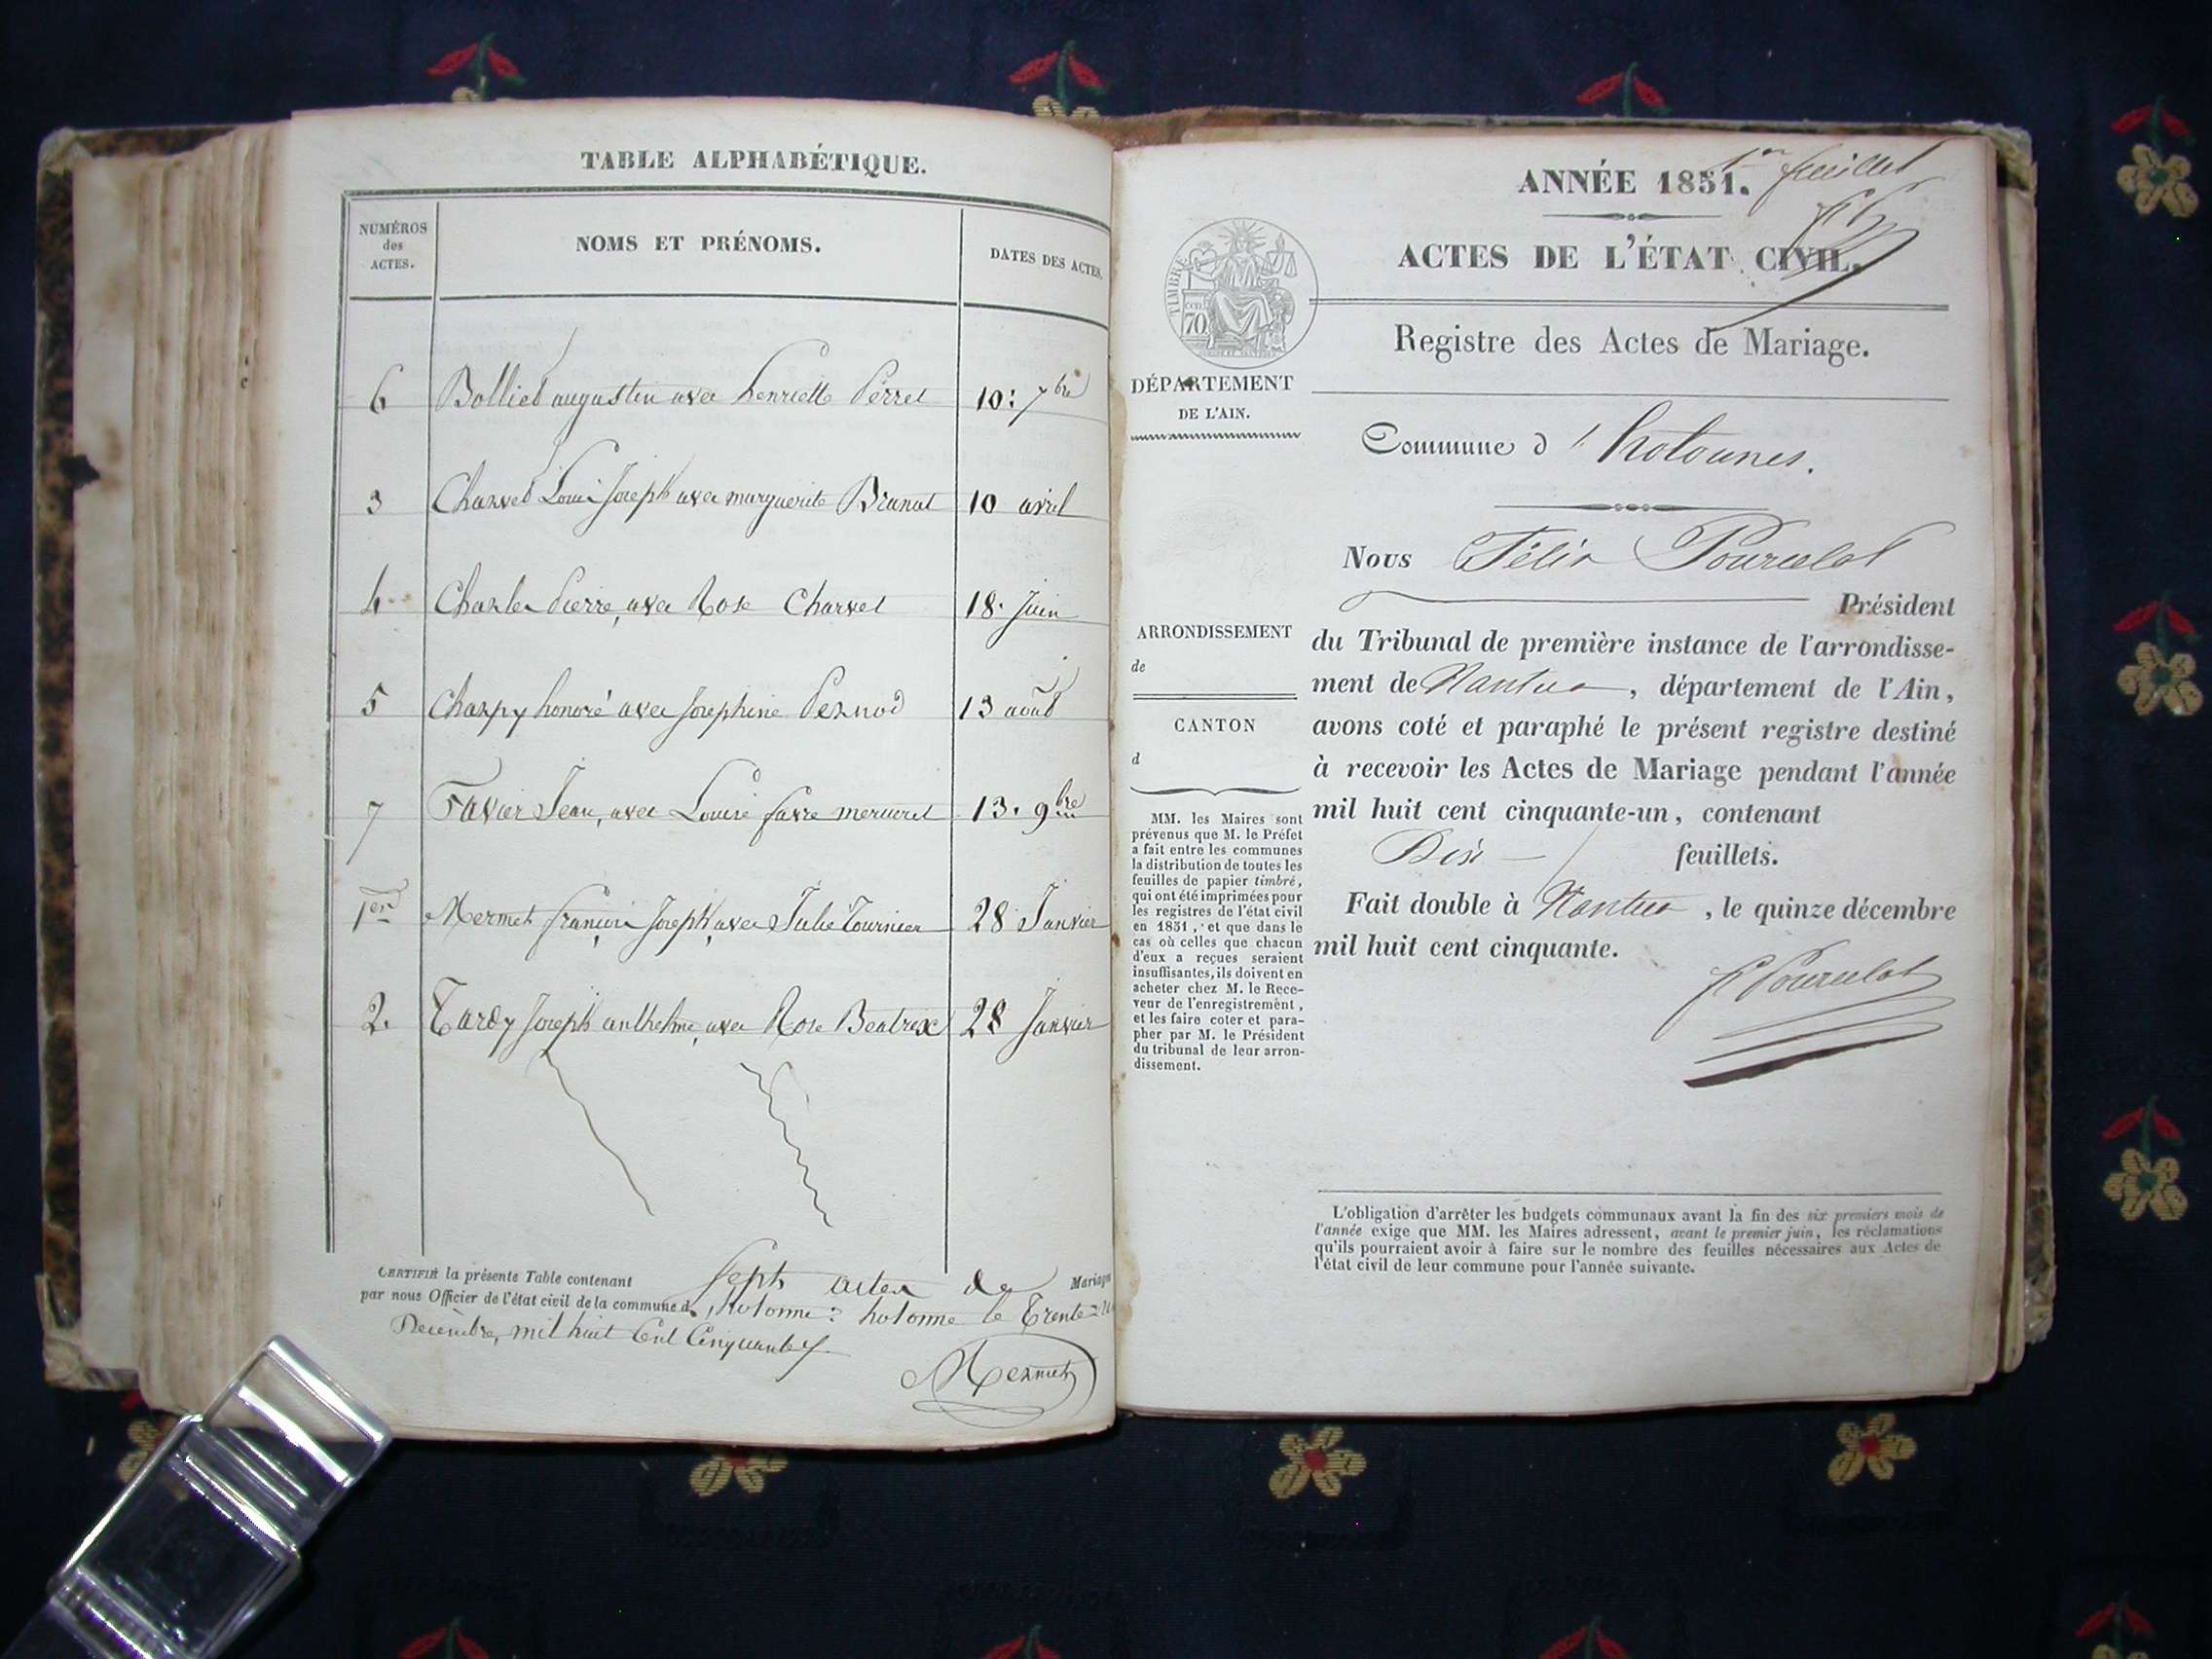 TABLE ALPHABÉTIQUE.
NUMÉROS
des
ACTES.
NOMS ET PRÉNOMS.
DATES DES ACTES.
6 Bolliet augustin avec henriette Perret 10: 7bre
3 Charvet Loui Joseph avec marguerite Brunat 10 avril
4 Pierre, avec Rose Charvet 18. Juin
5 Charpy honoré avec Josephine Pernod 13 août
7 Favier Jean, avec Louise favre 13. 9bre
1er Mermet françois Joseph, avec Julie Tournier 28 Janvier
2. Tardy Joseph anthelme, avec Rose Beatrix 28 Janvier
CERTIFIÉ la présente Table contenant sept actes de Mariages
par nous Officier de l'état civil de la commune d' hotonne: hotonne le Trente
Decembre, mil huit Cent Cinquante
Mermet
1er feuillet
ANNÉE 1851.
ACTES DE L'ÉTAT CIVIL.
TIMBRE
70
Registre des Actes de Mariage.
DÉPARTEMENT
DE L'AIN.
Commune d'hotonnes.
Nous Félix Pourcelot
Président
ARRONDISSEMENT
de
CANTON
d
du Tribunal de première instance de l'arrondisse-
ment de Nantua, département de l'Ain,
avons coté et paraphé le présent registre destiné
à recevoir les Actes de Mariage pendant l'année
mil huit cent cinquante-un, contenant
Dix feuillets.
Fait double à Nantua, le quinze décembre
mil huit cent cinquante.
F Pourcelot
MM. les Maires sont
prévenus que M. le Préfet
a fait entre les communes
la distribution de toutes les
feuilles de papier timbré,
qui ont été imprimées pour
les registres de l'état civil
en 1851, et que dans le
cas où celles que chacun
d'eux a reçues seraient
insuffisantes, ils doivent en
acheter chez M. le Rece-
veur de l'enregistrement,
et les faire coter et para-
pher par M. le Président
du tribunal de leur arron-
dissement.
L'obligation d'arrêter les budgets communaux avant la fin des six premiers mois de
l'année exige que MM. les Maires adressent, avant le premier juin, les réclamations
qu'ils pourraient avoir à faire sur le nombre des feuilles nécessaires aux Actes de
l'état civil de leur commune pour l'année suivante.